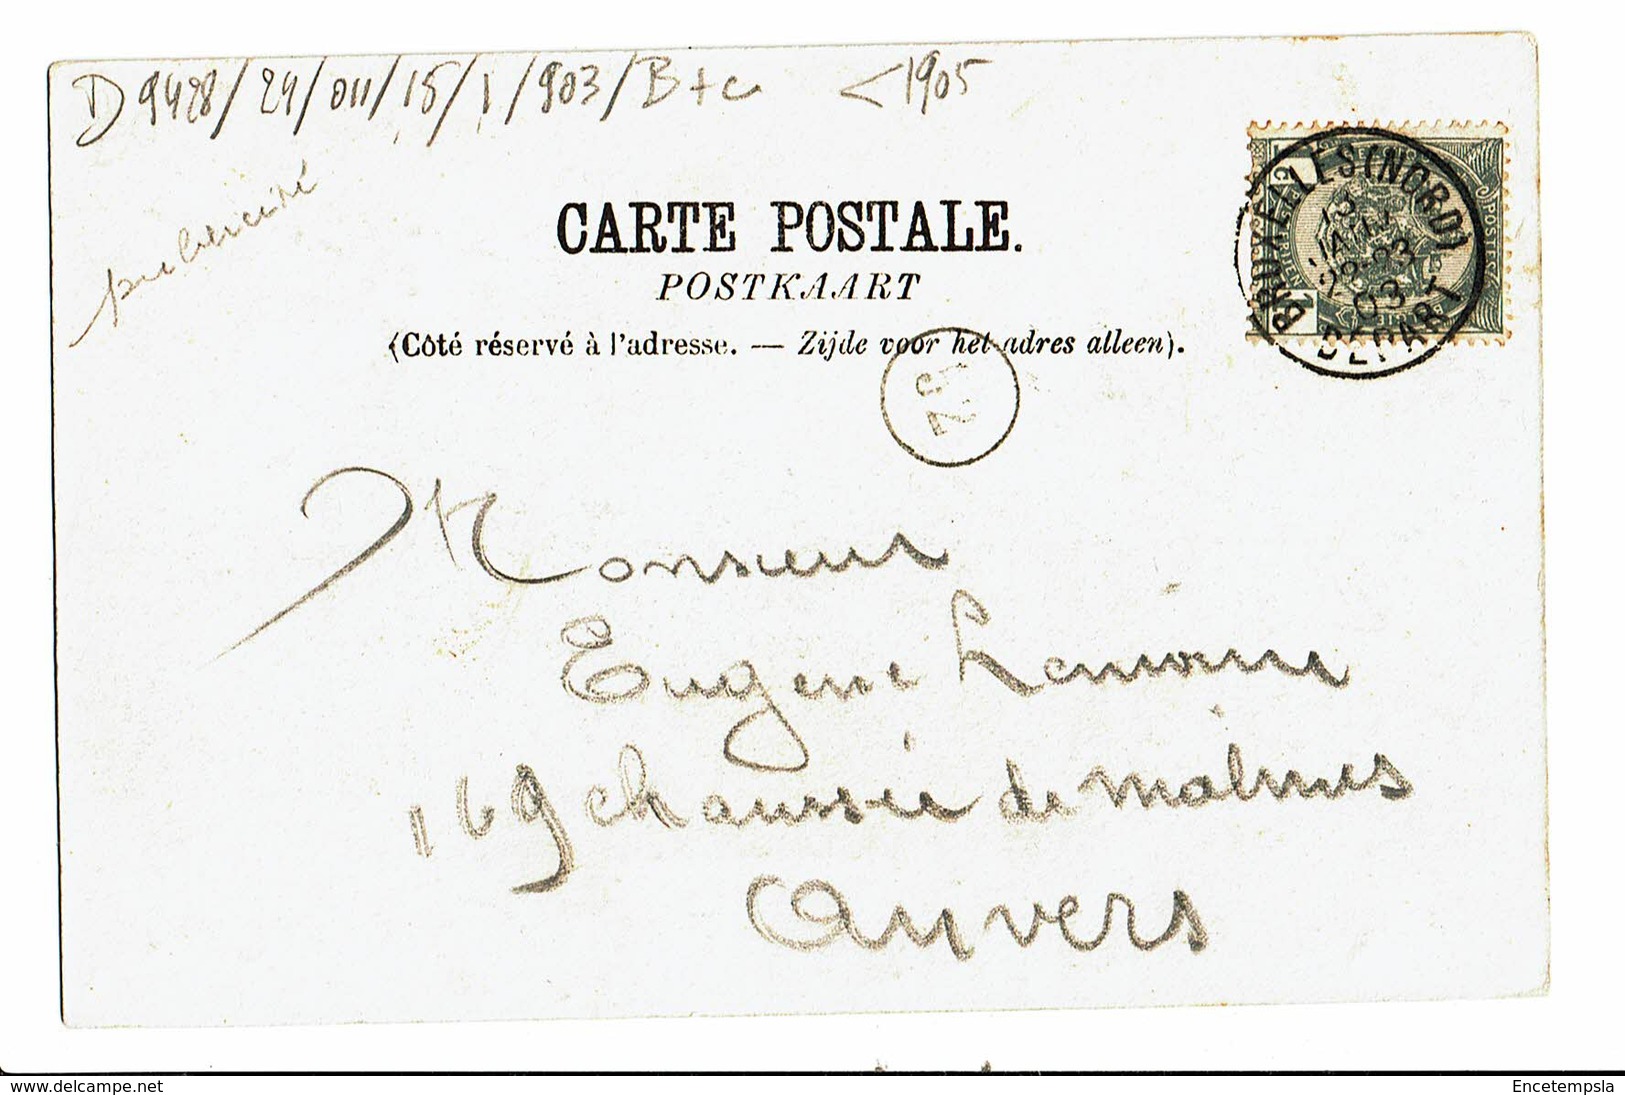 D 9428/24/011/15/1/903/B+c <1905
publicité
CARTE POSTALE.
POSTKAART
(Côté réservé à l'adresse. — Zijde voor het adres alleen).
BRUXELLES (NORD)
JANV
03
DEPART
POSTES
Monsieur
Eugène Lemoine
169 chaussée de malines
Anvers
www.delcampe.net
Encetempsla